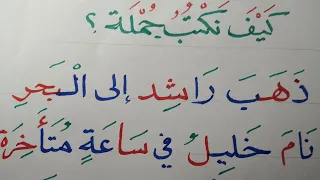 كَيْفَ نَكْتُبُ جُمْلَة ؟
ذَهَبَ رَاشِد إلى الْبَحرِ
نَامَ خَلِيلُ في سَاعَةٍ مُتَأَخِرَة